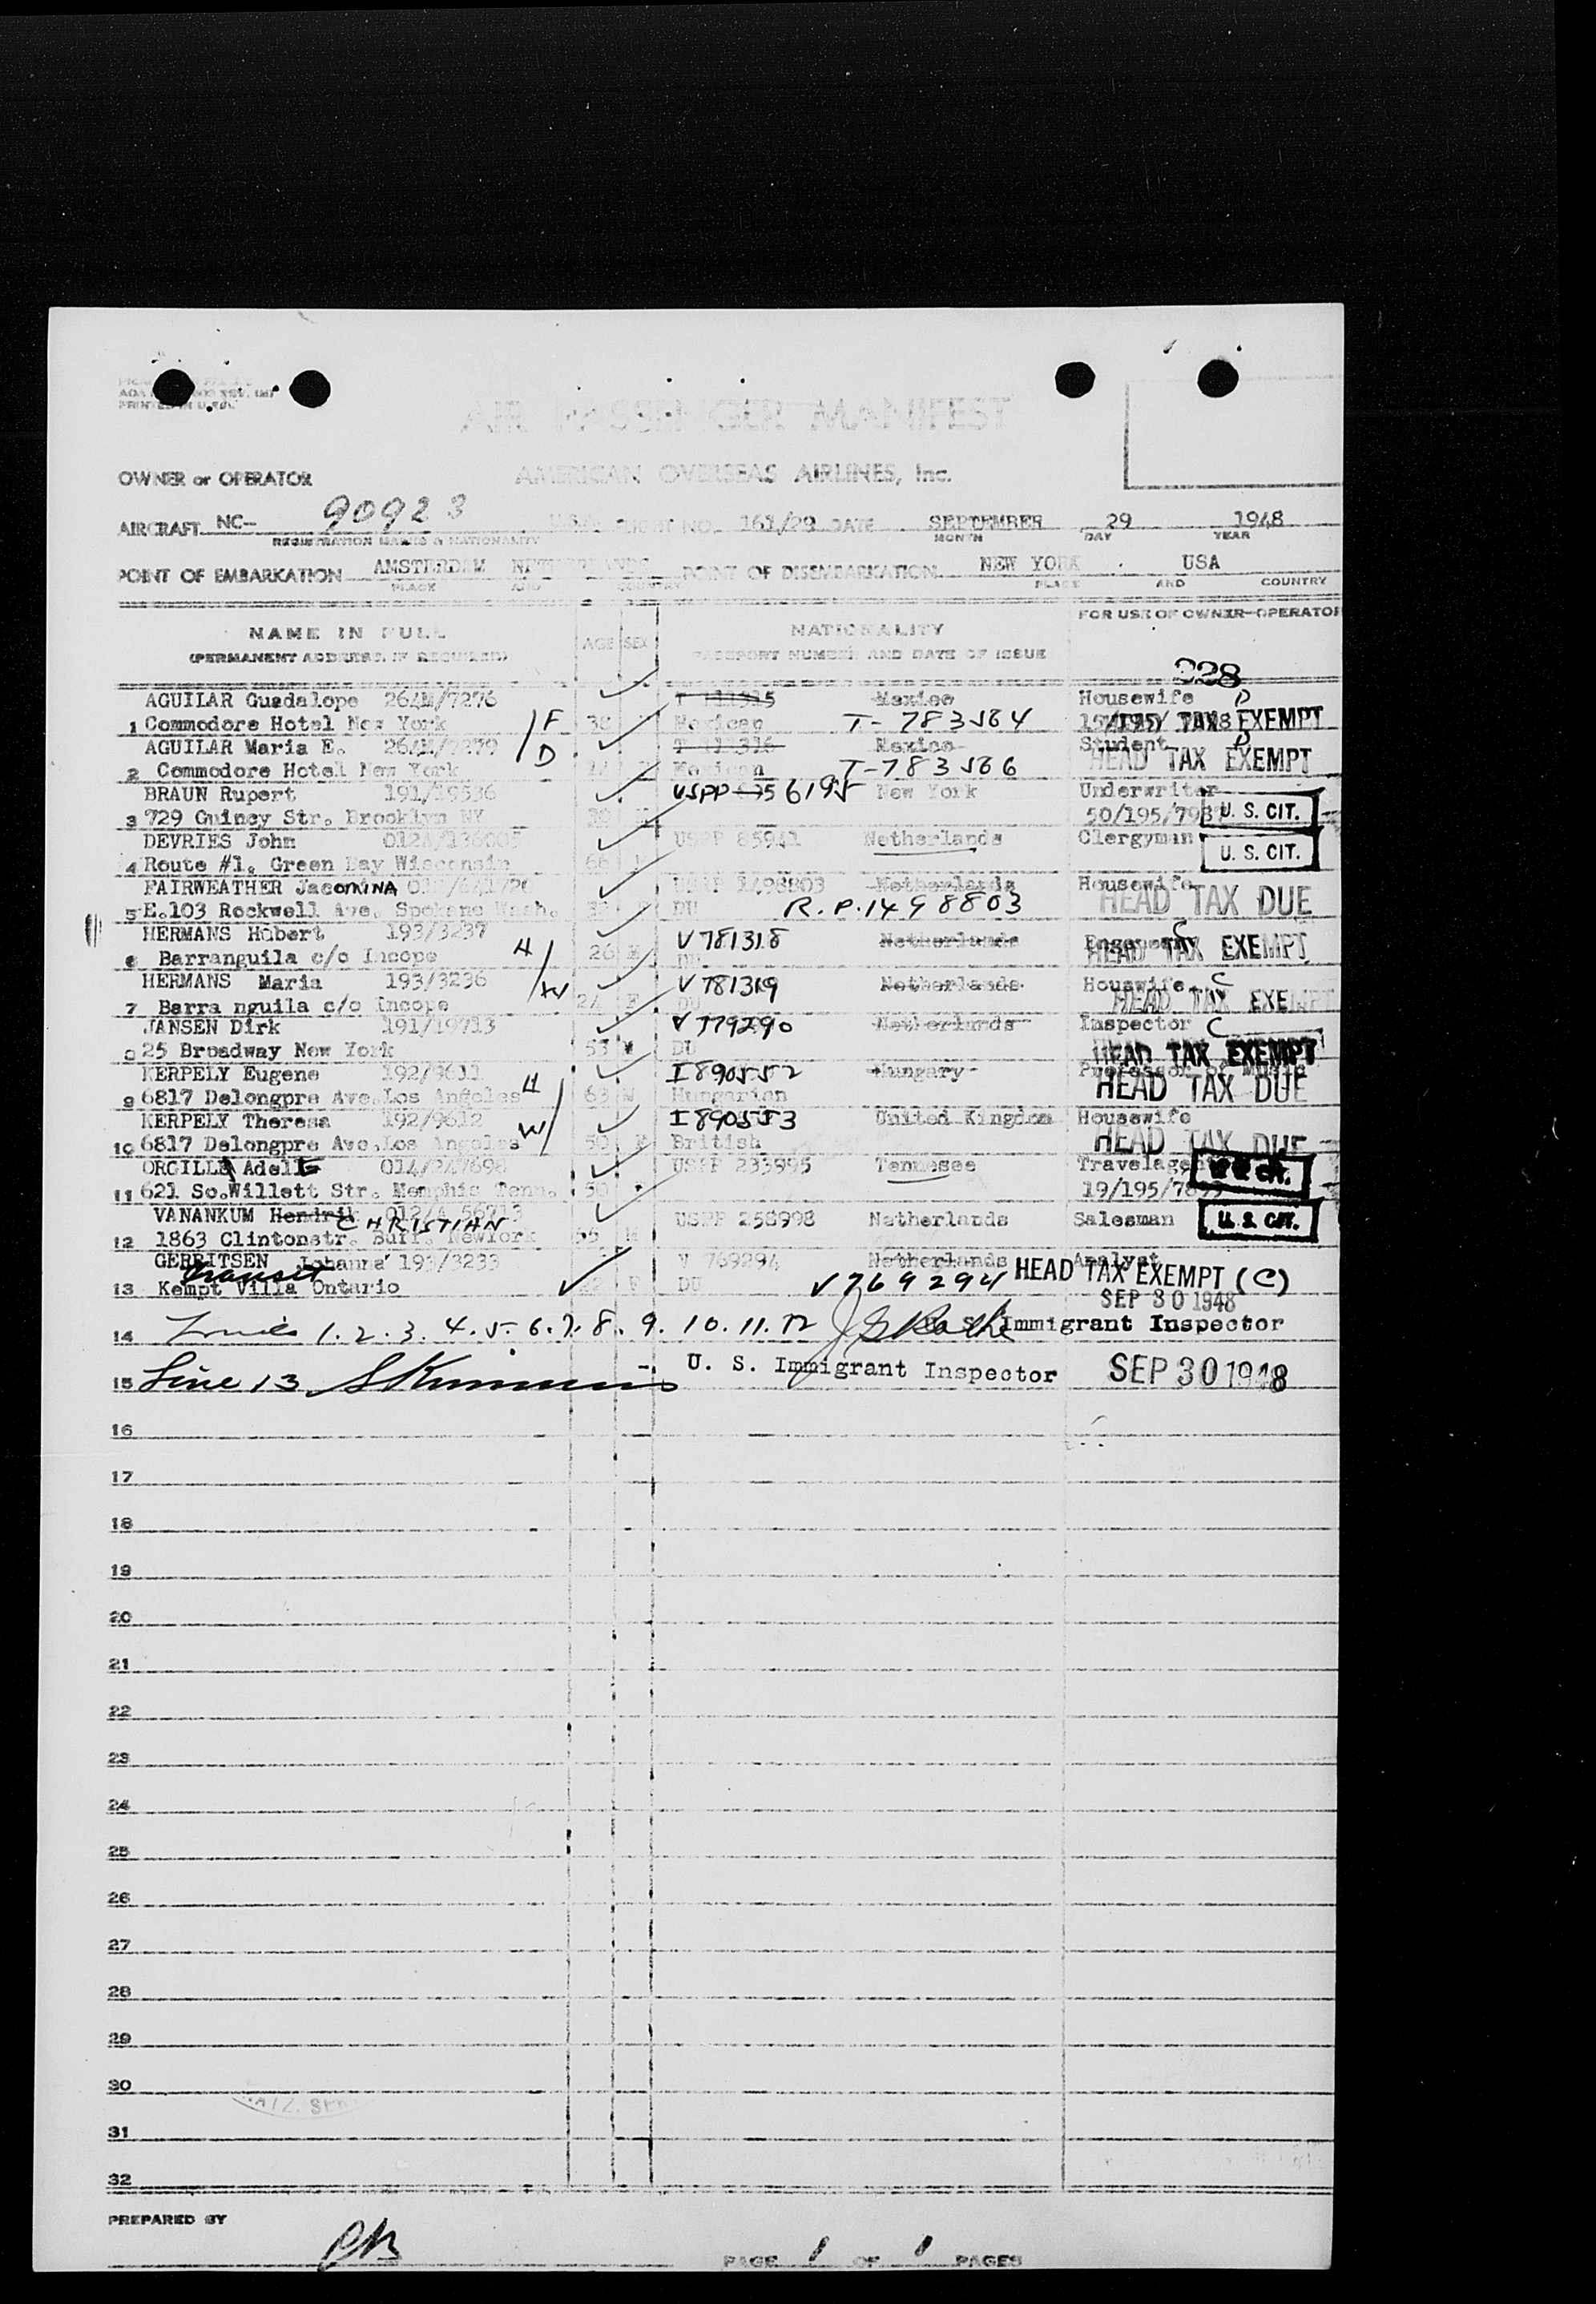 PRINTED IN U.S.A.
AIR PASSENGER MANIFEST
OWNER or OPERATOR AMERICAN OVERSEAS AIRLINES, Inc.
AIRCRAFT NC- 90923 FLIGHT NO. 161/29 DATE SEPTEMBER 29 1948
REGISTRATION MARKS & NATIONALITY MONTH DAY YEAR
POINT OF EMBARKATION AMSTERDAM NETHERLANDS POINT OF DISEMBARKATION NEW YORK USA
PLACE AND COUNTRY PLACE AND COUNTRY
NAME IN FULL AGE SEX NATIONALITY FOR USE OF OWNER-OPERATOR
(PERMANENT ADDRESS, IF REQUIRED) PASSPORT NUMBER AND DATE OF ISSUE
228
AGUILAR Guadalope 264M/7276 Mexico Housewife D
1 Commodore Hotel New York F 38 Mexican T-783564 HEAD TAX EXEMPT
AGUILAR Maria E. Mexico Student D
2 Commodore Hotel New York D Mexican T-783566 HEAD TAX EXEMPT
BRAUN Rupert 191/19536 USPP 56195 New York Underwriter
3 729 Quincy Str. Brooklyn NY 50/195/793 U. S. CIT.
DEVRIES John USPP 85941 Netherlands Clergyman
4 Route #1. Green Bay Wisconsin 66 U. S. CIT.
FAIRWEATHER JacoMINA 1498803 Netherlands Housewife
5 E.103 Rockwell Ave. Spokane Wash. DU R.P.1498803 HEAD TAX DUE
HERMANS Hubert 193/3237 V781318 Netherlands C
6 Barranguila c/o Incope H 26 DU HEAD TAX EXEMPT
HERMANS Maria 193/3236 V781319 Netherlands Houswife C
7 Barra nguila c/o Incope W 24 F DU HEAD TAX EXEMPT
JANSEN Dirk 191/19713 V779290 Netherlands Inspector C
8 25 Broadway New York 53 M DU HEAD TAX EXEMPT
KERPELY Eugene 192/9611 I890552 Hungary Professor of Music
9 6817 Delongpre Ave.Los Angeles H 63 M Hungarian HEAD TAX DUE
KERPELY Theresa 192/9612 I890553 United Kingdom Housewife
10 6817 Delongpre Ave.Los Angeles W 50 F British HEAD TAX DUE
ORGILL Adele USPP 233995 Tennesee Travelagent
11 621 So.Willett Str. Memphis Tenn. 50 19/195/78 U. S. CIT.
VANANKUM Hendrik CHRISTIAN USPP 258998 Netherlands Salesman
12 1863 Clintonstr. Buff. NewYork 55 M U. S. CIT.
GERRITSEN Johanna 193/3233 V 769294 Netherlands Analyst
13 Kempt Villa Ontario Transit F DU V769294 HEAD TAX EXEMPT (C)
SEP 30 1948
14 Lines 1.2.3.4.5.6.7.8.9.10.11.12 U. S. Immigrant Inspector
15 Line 13 U. S. Immigrant Inspector SEP 30 1948
16
17
18
19
20
21
22
23
24
25
26
27
28
29
30
31
32
PREPARED BY
PAGE 1 OF 1 PAGES